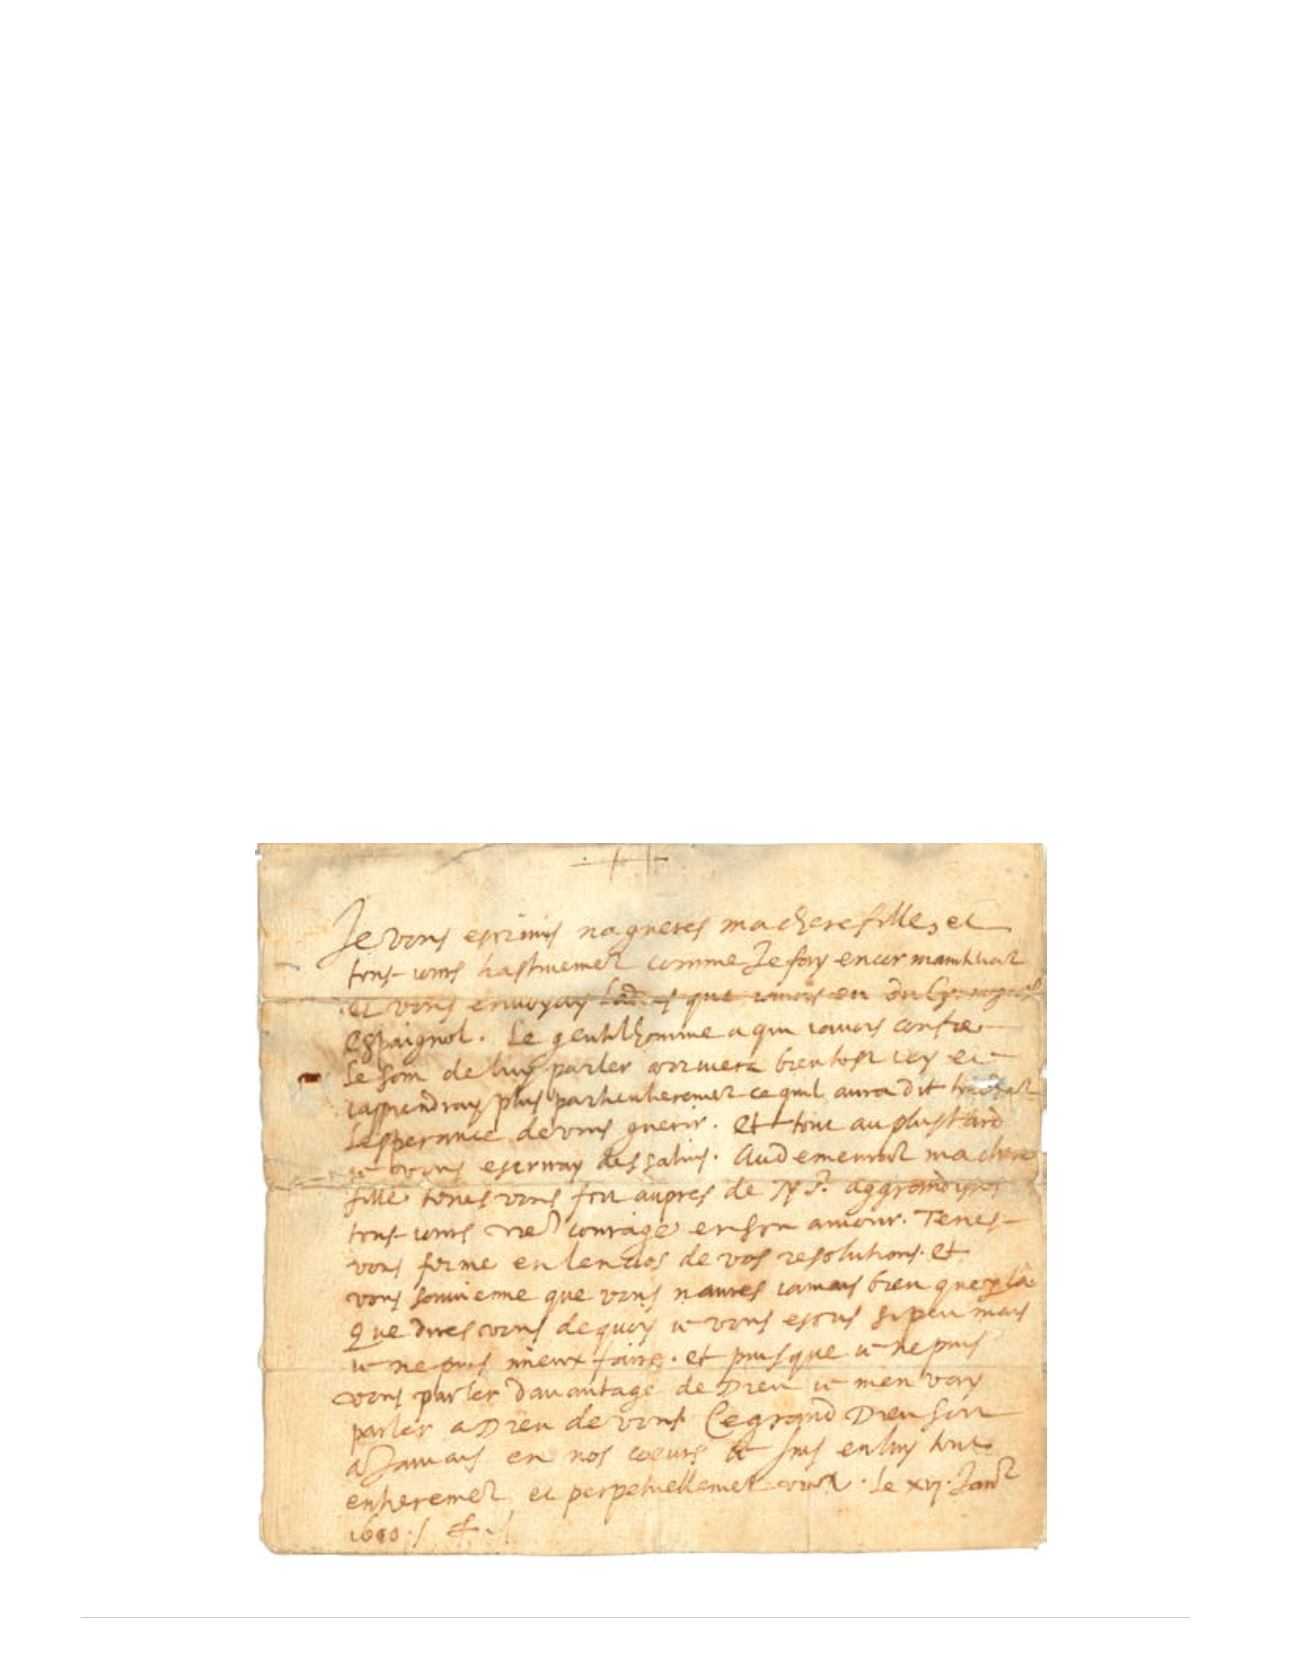 Je vous escrivis nagueres ma chere fille, et
tous-iours hastivemet comme Je fay encor maintenat
et vous envoyay que iavois eu du
espaignol. Le gentilhomme a qui iavois confié
le soin de luy parler arrivera bien tost icy et
iapprendray plus particulieremet ce quil aura dit
lesperance de vous guerir. Et tout au plus tard
ie vous escrivay des salins. ma chere
fille tenes vous fort aupres de N S. aggrandisses
tous-iours vre courage en son amour. Tenes
vous ferme en lenclos de vos resolutions. et
vous souvienne que vous naures iamais bien que la
Que dires vous dequoy ie vous escris si peu mais
ie ne puis mieux faire. et puis que ie ne puis
vous parler davantage de Dieu ie men vay
parler a Dieu de vous. Ce grand Dieu soit
a Jamais en nos coeurs Je suis en luy tout
entieremet et perpetuellemet vre. Le xvj. Janr